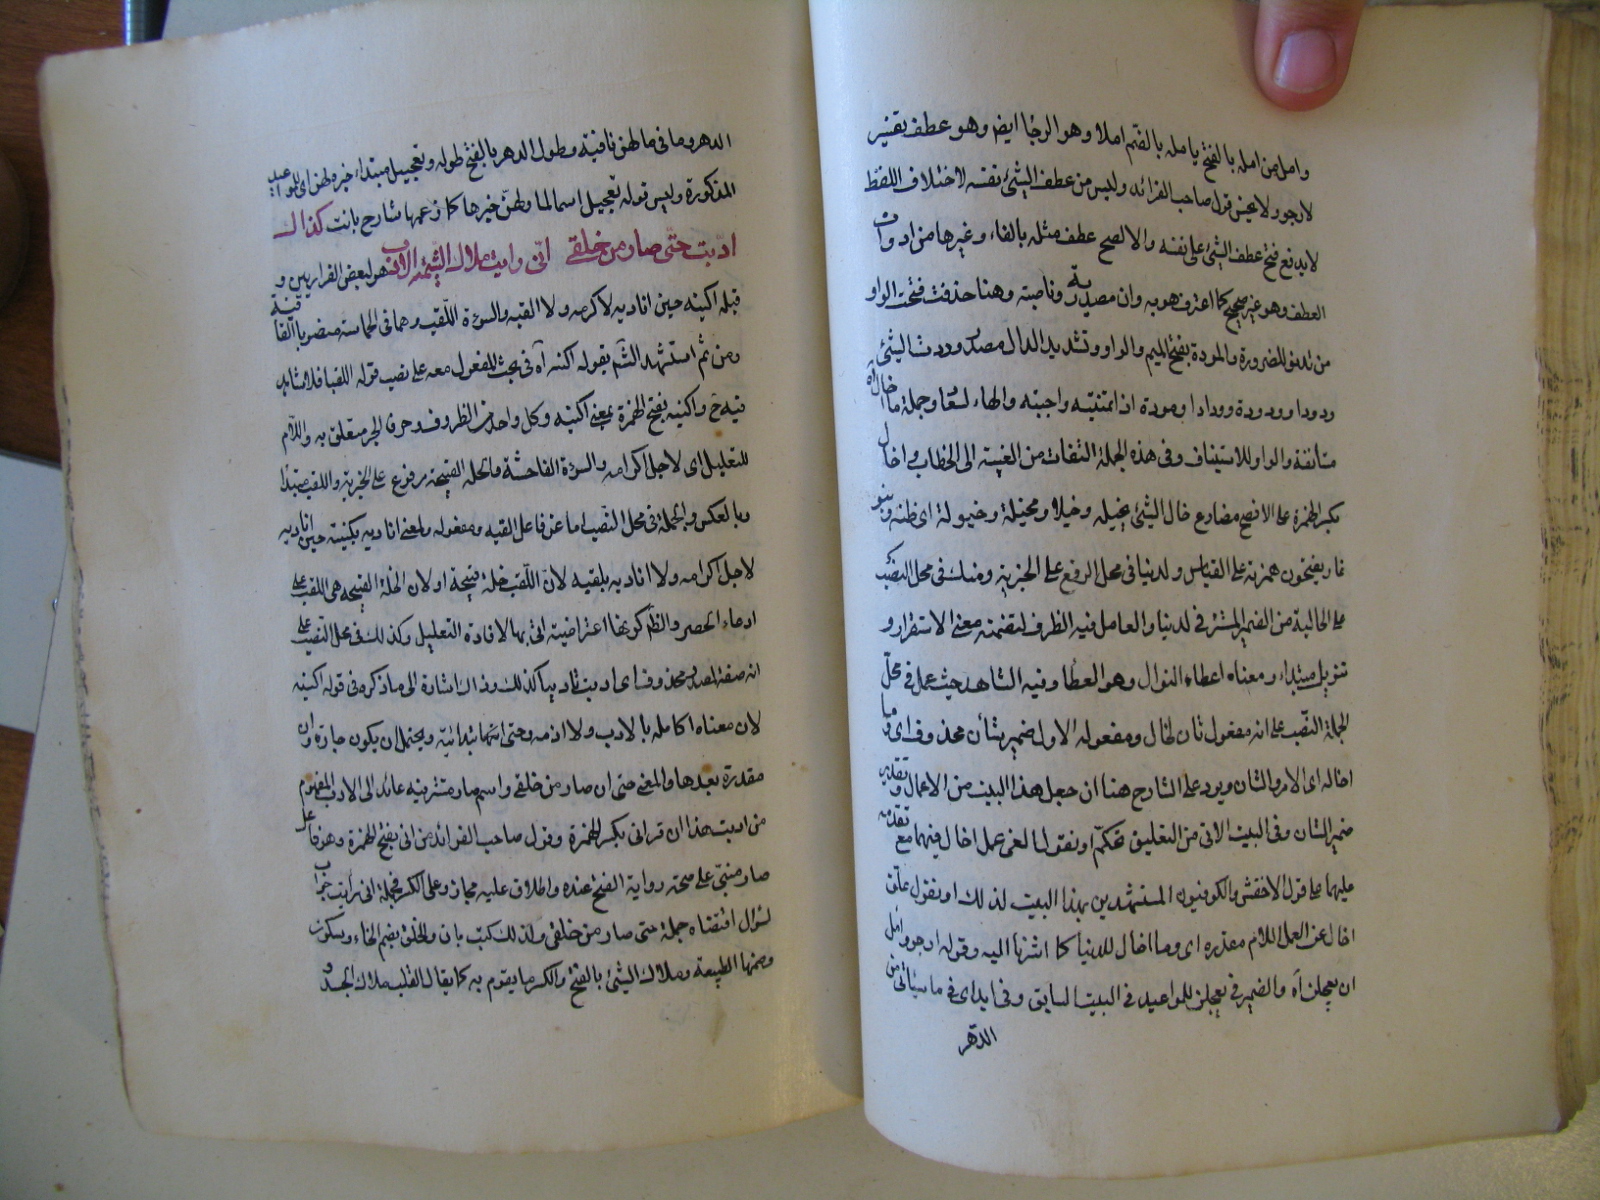 وامل من امله بالفتح يامله بالضم املا وهو الرجا ايضا وهو عطف تفسير
لارجو ولا يحسن قول صاحب الفرائد وليس من عطف الشئ نفسه لاختلاف اللفظ
لا يدفع قبح عطف الشئ على نفسه والا لصح عطف مثله بالفاء وغيرها من ادوات
العطف وهو غير صحيح كما اعترف هو به وان مصدرية وناصبة وهنا حذفت فتحت الواو
من تدنو للضرورة والمودة بفتح الميم والواو وتشديد الدال مصدر وددت الشئ
ودودا وودودة وودادا ومودة اذا تمنيته واحببته والهاء لسعاد وجملة ما اخال آه
مستأنفة والواو للاستيناف وفى هذه الجملة التفات من الغيبة الى الخطاب واخال
بكسر الهمزة على الافصح مضارع خال الشئ يخيله وخيلا ومخيلة وخيولة اى ظنه وبنو
يفتحون همزته على القياس ولدينا فى محل الرفع على الخبرية ومنك فى محل النصب
على الحالية من الضمير المستتر فى لدينا والعامل فيه الظرف لتضمنه معنى الاستقرار و
تنويل مبتداء ومعناه اعطاء النوال وهو العطا وفيه الشاهد حيث عمل فى محل
الجملة النصب على انه مفعول ثان لخال ومفعوله الاول ضمير شأن محذوف اى وما
اخاله اى الامر والشان ويرد على الشارح هنا ان جعل هذا البيت من الاعمال وتقدير
ضمير الشان وفى البيت الاتى من التعليق تحكم او نقول الغى عمل اخال فيهما مع تقدمه
عليهما على قول الاخفش والكوفيون المستشهدين بهذا البيت لذلك او نقول علق
اخال عن العمل اللام مقدره اى وما اخال للدينا كما اشرنا اليه وقوله ارجو وامل
ان يعجلن آه والضمير فى يعجلن للمواعيد فى البيت السابق وفى ابد اى فى ما سيأتى من
الدهر
الدهر وما فى ما لهن نافية وطول الدهر بالفتح طوله وتعجيل مبتداء خبره لهن اى للمواعيد
المذكورة وليس قوله تعجيل اسما لما ولهن خبرها كما زعمها شارح بانت كذاك
ادبت حتى صار من خلقى انى رايت ملاك الشيمة الادب هو لبعض الفزاريين و
قبله اكنيه حين اناديه لاكرمه ولا القبه والسوءة اللقب وهما فى الحماسة منصوبا القافية
ومن ثم استشهد الشم بقوله اكنيه آه فى بحث المفعول معه على نصب قوله اللقبا فلا شاهد
فيه ح واكنيه بفتح الهمزة بمعنى اكنيه وكل واحد من الظروف وحرف الجر متعلق به واللام
للتعليل اى لاجل اكرامه والسوءة الفاحشة والخلة القبيحة مرفوع على الخبرية واللقب مبتدا
وبالعكس والجملة فى محل النصب اما عن فاعل القبه ومفعوله والمعنى اناديه بكنيته حين اناديه
لاجل اكرامه ولا اناديه بلقبه لان اللقب خلة قبيحة او لان الخلة القبيحة هى اللقب على
ادعاء الحصر والظم كونها اعتراضية اتى بها لافادة التعليل وكذلك فى محل النصب على
انه صفة لمصدر محذوف اى ادبت تاديبا كذلك وذاك اشارة الى ما ذكر فى قوله اكنيه
لان معناه اكامله بالادب ولا اذمه وحتى انها ابتدائية ويحتمل ان يكون جارة وان
مقدرة بعدها والمعنى حتى ان صار من خلقى واسم صار مستتر فيه عائد الى الادب المفهوم
من ادبت هذا ان قرا انى بكسر الهمزة وقول صاحب الفرائد من انى بفتح الهمزة وهو فاعل
صار مبنى على صحة رواية الفتح عنده واطلاق عليه مجاز وعلى الكسر فجملة انى رايت جواب
لسؤال اقتضاه جملة حتى صار من خلقى ولذلك كتب بان والخلق بضم الخاء وبسكون
وضمها الطبيعة وملاك الشئ بالفتح والكسر ما يقوم به كما يقال القلب ملاك الجسد و